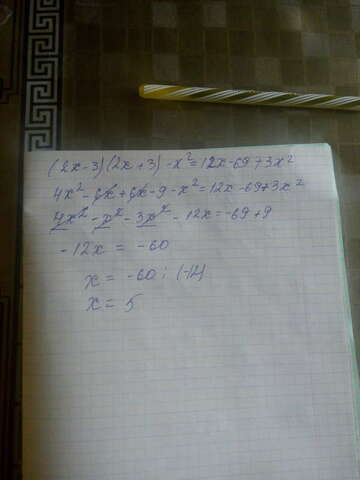 (2x-3)(2x+3)-x²=12x-69+3x²
4x²-6x+6x-9-x²=12x-69+3x²
4x²-x²-3x²-12x=-69+9
-12x = -60
x = -60 : (-12)
x = 5